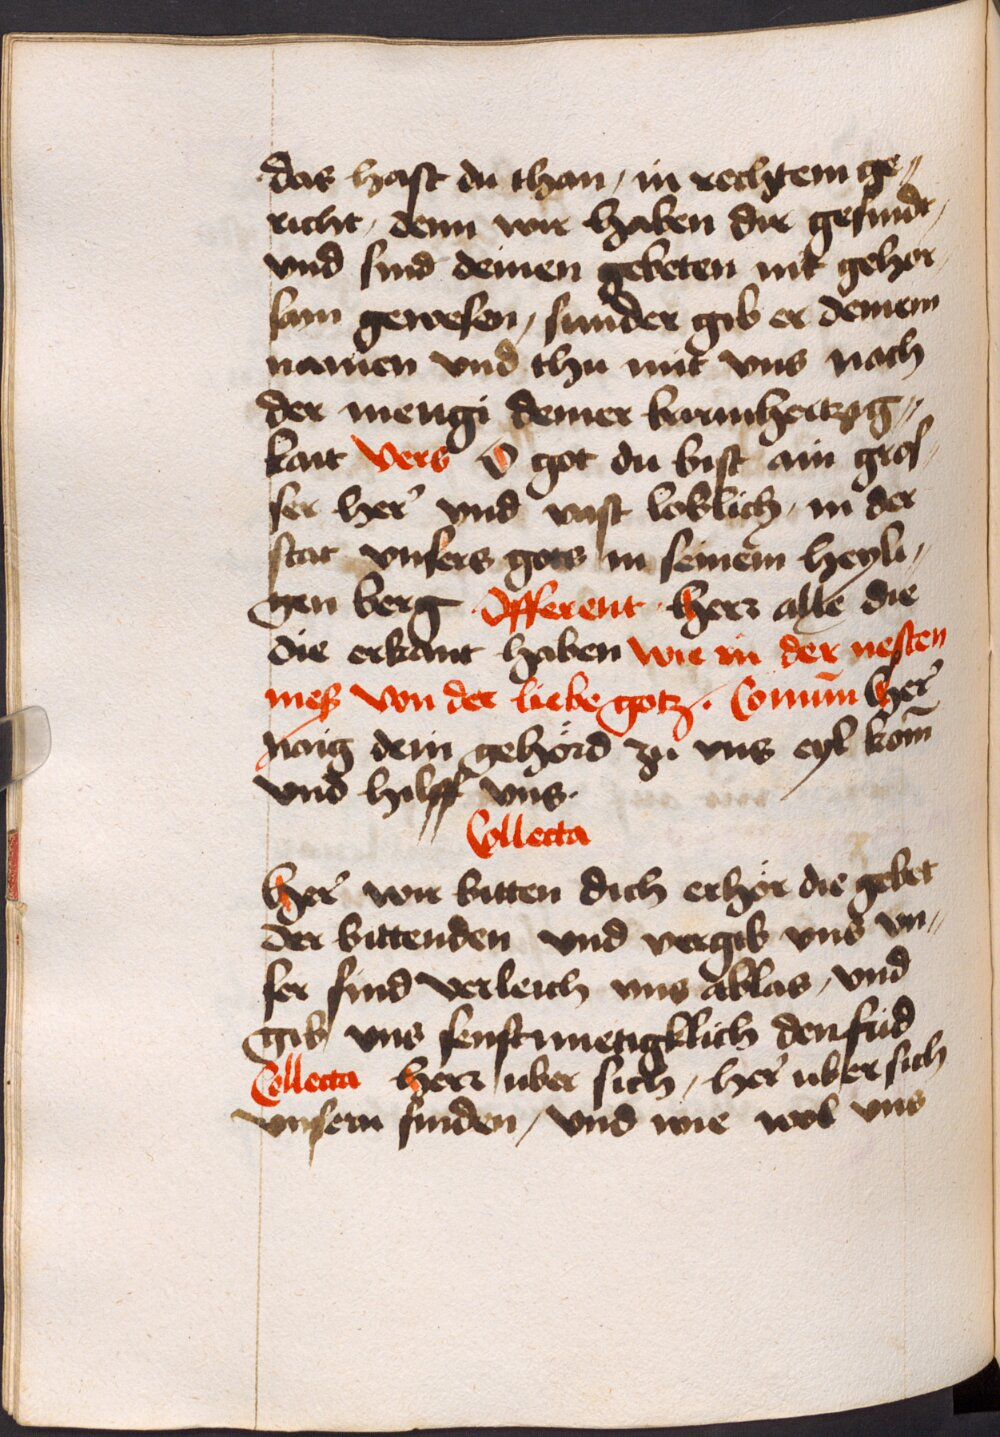 das hast du than / in rechtem ge„
richt / denn wir haben dir gesundt /
vnd sind deinen gebeten nit gehor /
sam gewesen / sunder gib er deinem
namen vnd thu mit vns nach
der mengi deiner barmhertzig„
kait Vers O got du bist ain gros /
ser her̃ vnd vast loblich / in der
stat vnsers gots in seinem heyli /
gen berg Offerent herr alle die
die erkant haben wie in der nesten
mess von der liebe gotz . Com̃un her̃
naig dein gehörd zu vns eyl kom̃
vnd hilff vns .
Collecta
her̃ wir bitten dich erhör die gebet
der bittenden vnd vergib vns vn„
ser sind verleich vns ablas / vnd
gib vns senftmetigklich den frid
Collecta herr uber sich / her̃ uber sich
vnsern sinden / vnd wie wol vns